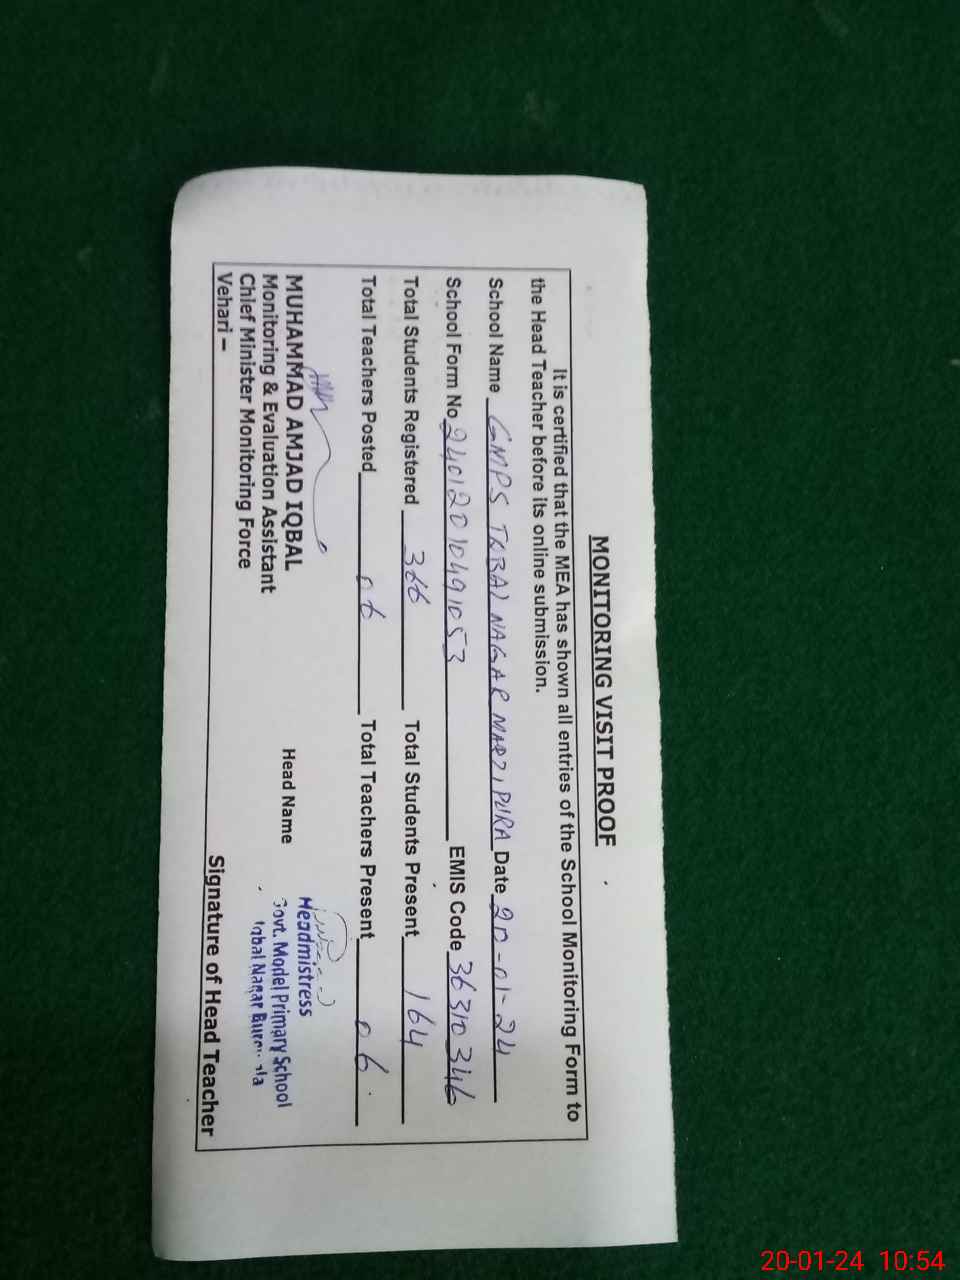 MONITORING VISIT PROOF
It is certified that the MEA has shown all entries of the School Monitoring Form to
the Head Teacher before its online submission.
School Name GMPS IQBAL NAGAR MARZI PURA Date 20-01-24
School Form No 24012010491053 EMIS Code 36310346
Total Students Registered 366 Total Students Present 164
Total Teachers Posted 06 Total Teachers Present 06
MUHAMMAD AMJAD IQBAL
Monitoring & Evaluation Assistant
Chief Minister Monitoring Force
Vehari –
Head Name
Headmistress
Govt. Model Primary School
Iqbal Nagar
Signature of Head Teacher
20-01-24 10:54